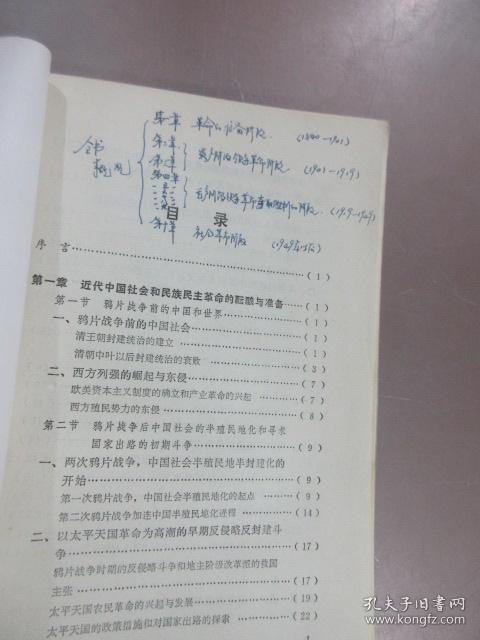 第一章 革命的准备阶段 (1840—1901)
全书
概况
第二章
第三章 资产阶级领导革命阶段 (1901—1919)
第四章
无产阶级领导革命 (1919—1949)
第十章 社会革命阶段 (1949年以后)
目 录
序 言 (1)
第一章 近代中国社会和民族民主革命的酝酿与准备 (1)
第一节 鸦片战争前的中国和世界 (1)
一、鸦片战争前的中国社会 (1)
清王朝封建统治的建立 (1)
清朝中叶以后封建统治的衰败 (3)
二、西方列强的崛起与东侵 (7)
欧美资本主义制度的确立和产业革命的兴起 (7)
西方殖民势力的东侵 (8)
第二节 鸦片战争后中国社会的半殖民地化和寻求
国家出路的初期斗争 (9)
一、两次鸦片战争,中国社会半殖民地半封建化的
开始 (9)
第一次鸦片战争,中国社会半殖民地化的起点 (9)
第二次鸦片战争加速中国半殖民地化进程 (14)
二、以太平天国革命为高潮的早期反侵略反封建斗
争 (17)
鸦片战争时期的反侵略斗争和地主阶级改革派的救国
主张 (17)
太平天国农民革命的兴起与发展 (19)
太平天国的政策措施和对国家出路的探索 (22)
1
孔夫子旧书网